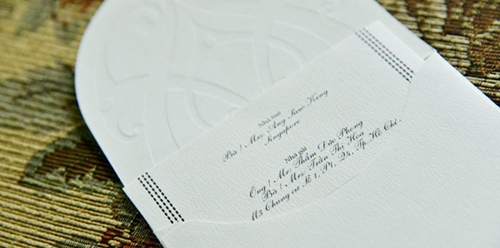 Nhà trai
Bà / Mrs. Ang Siew Hong
Singapore
Nhà gái
Ông / Mr. Thẩm Đức Phong
Bà / Mrs. Trần Thị Hoa
113 Chung cư P. 24, Tp. Hồ Chí